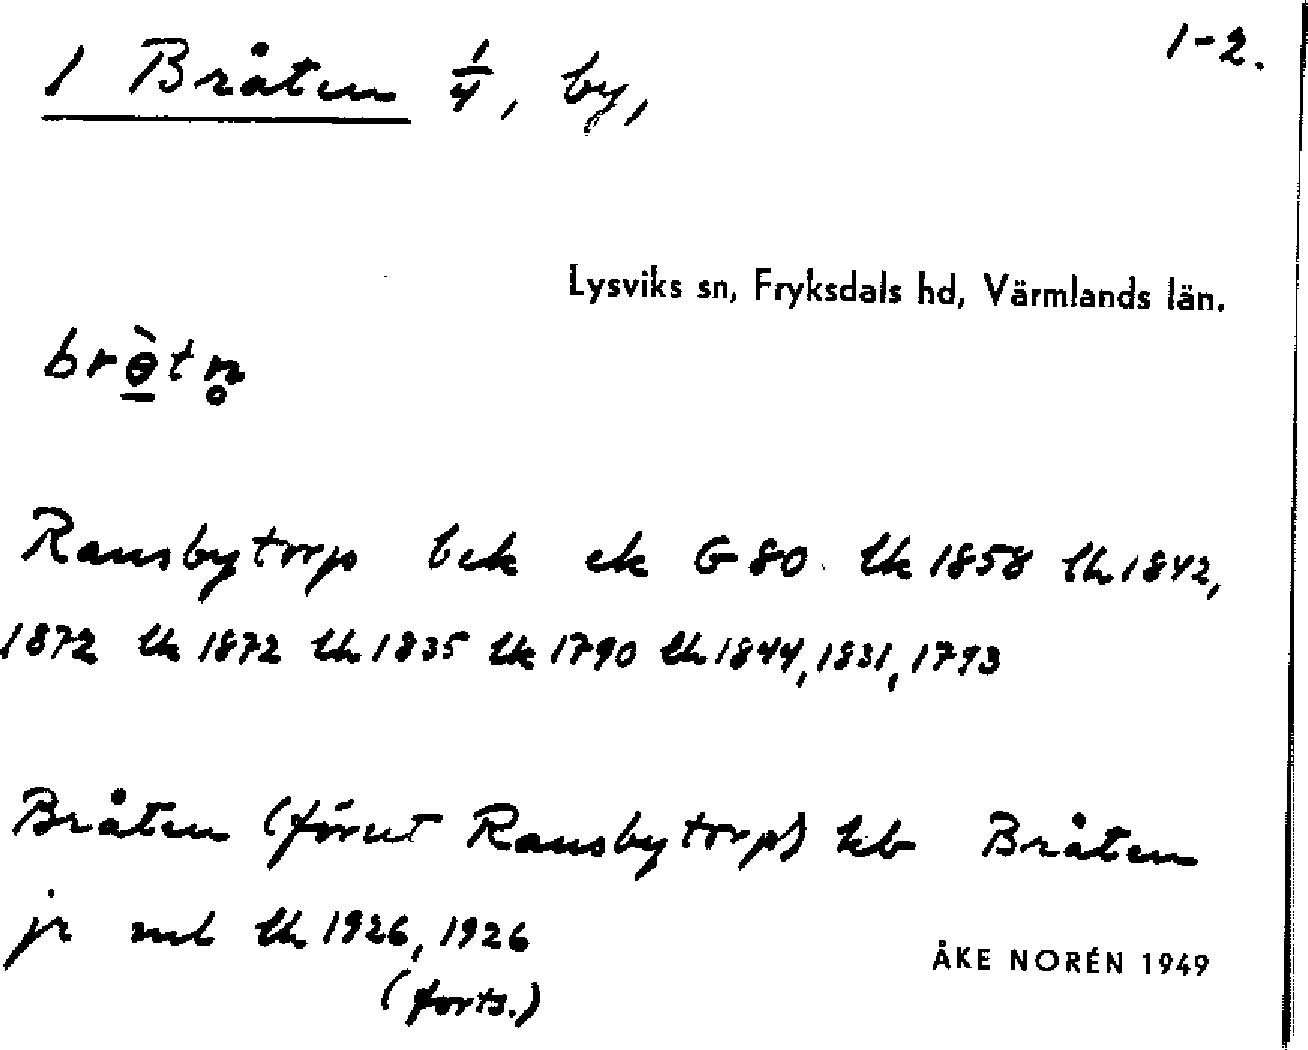 1 Bråten 1/4, by,
1-2.
Lysviks sn, Fryksdals hd, Värmlands län.
brɵ̠̀tn̥
Ransbytorp bek ek G 80 lk 1858 lh 1842,
1872 lk 1872 lh 1835 lk 1790 lh 1844, 1831, 1793
Bråten (förut Ransbytorp) kb Bråten
jr lh 1926, 1926
(forts.)
ÅKE NORÉN 1949